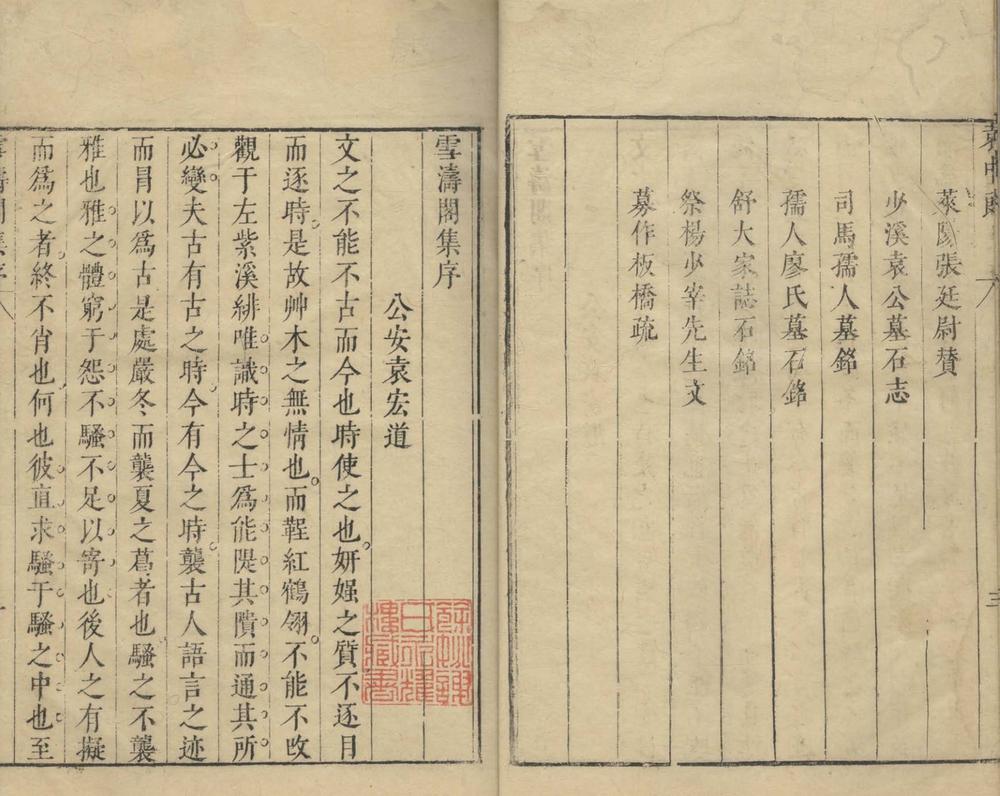 袁中郎
三
萊陽張廷尉賛
少溪袁公墓石志
司馬孺人墓銘
孺人廖氏墓石銘
舒大家誌石銘
祭楊少宰先生文
募作板橋疏
雪濤閣集序
公安袁宏道
餘姚謝
氏永耀
樓藏書
文之不能不古而今也時使之也。妍媸之質不逐目
而逐時。是故艸木之無情也。而鞓紅鶴翎。不能不改
觀于左紫溪緋唯識時之士爲能隄其隤而通其所
必變夫古有古之時今有今之時。襲古人語言之迹
而冐以爲古是處嚴冬而襲夏之葛者也騷之不襲
雅也雅之體窮于怨不騷不足以寄也後人之有擬
而爲之者終不肖也何也彼直求騷于騷之中也至
雪濤閣集序